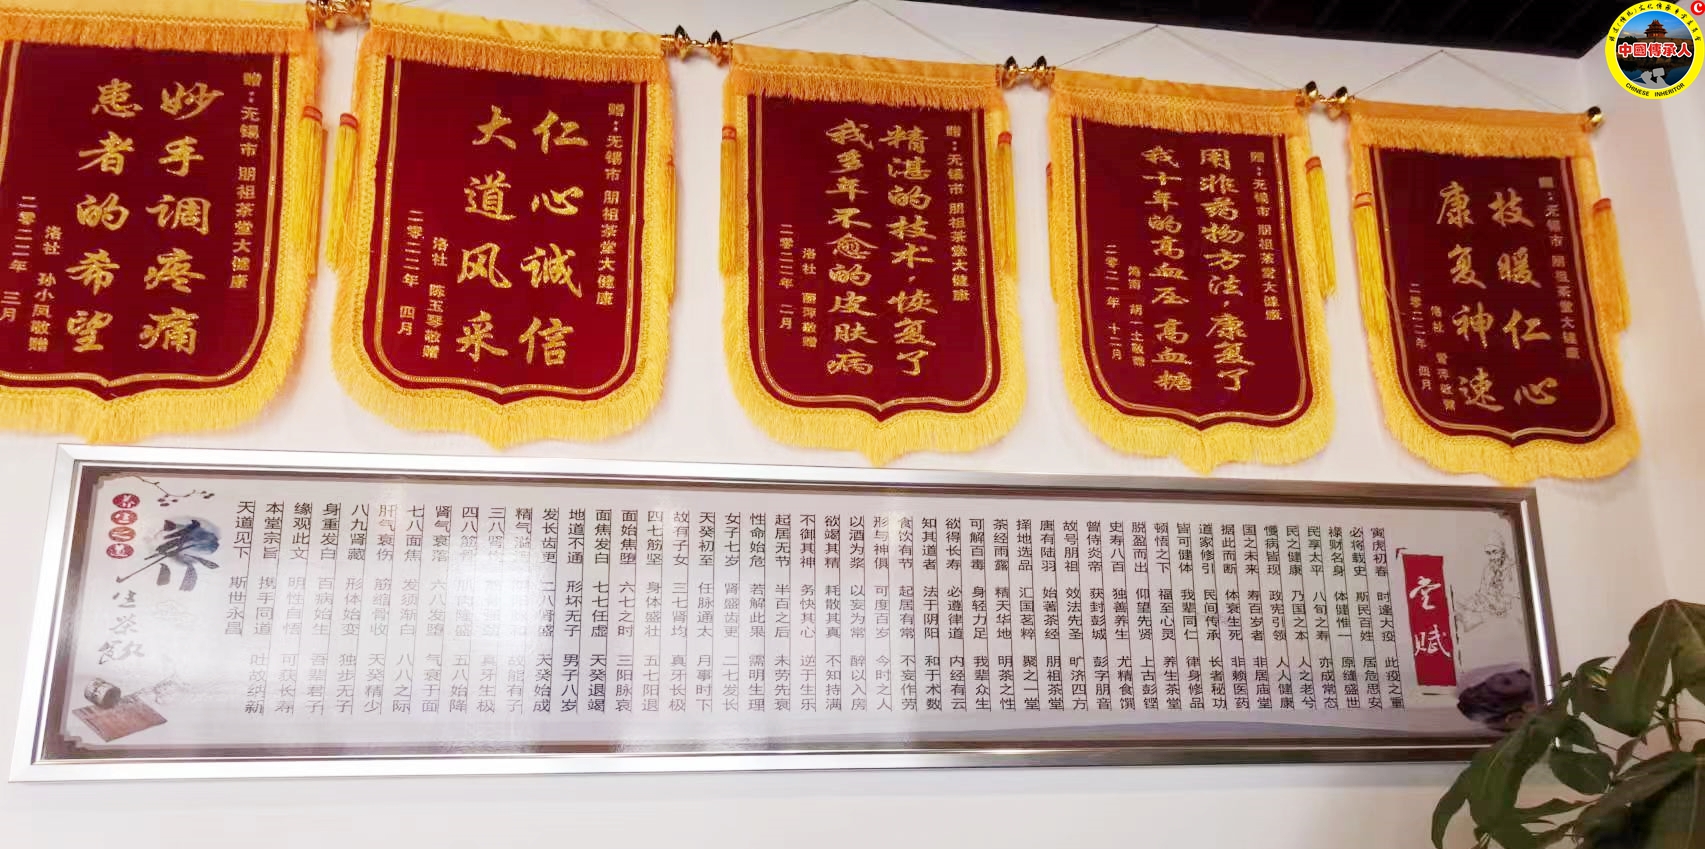 赠：无锡市 朋祖茶堂大健康
妙手调疼痛
患者的希望
洛社 孙小凤敬赠
二零二二年 三月
赠：无锡市 朋祖茶堂大健康
仁心诚信
大道风采
洛社 陈玉琴敬赠
二零二二年 四月
赠：无锡市 朋祖茶堂大健康
精湛的技术，恢复了
我多年不愈的皮肤病
洛社 丽萍敬赠
二零二二年 二月
赠：无锡市 朋祖茶堂大健康
用非药物方法，康复了
我十年的高血压高血糖
海南 胡一士敬赠
二零二一年 十二月
赠：无锡市 朋祖茶堂大健康
技暖仁心
康复神速
洛社 雪萍敬赠
二零二二年 四月
中國傳承人
CHINESE INHERITOR
堂赋
寅虎初春 时逢大疫 此疫之重
必将载史 斯民百姓 居危思安
禄财名身 体健惟一 原缝盛世
民享太平 八旬之寿 亦成常态
民之健康 乃国之本 人之老兮
慢病皆现 政宪引领 人人健康
国之未来 寿百岁者 非居庙堂
据此而断 体衰生死 非赖医药
道家修引 民间传承 长者秘功
皆可健体 我辈同仁 律身修品
顿悟之下 福至心灵 养生茶堂
脱盈而出 仰望先贤 上古彭铿
史寿八百 独善养生 尤精食馔
曾侍炎帝 获封彭城 彭字朋音
故号朋祖 效法先圣 旷济四方
唐有陆羽 始著茶经 朋祖茶堂
择地选品 汇国茗粹 聚之一堂
茶经雨露 精天华地 明茶之性
可解百毒 身轻力足 我辈众生
欲得长寿 必遵律道 内经有云
知其道者 法于阴阳 和于术数
食饮有节 起居有常 不妄作劳
形与神俱 可度百岁 今时之人
以酒为浆 以妄为常 醉以入房
欲竭其精 耗散其真 不知持满
不御其神 务快其心 逆于生乐
起居无节 半百之后 未劳先衰
性命始危 若解此果 需明生理
女子七岁 肾盛齿更 二七发长
天癸初至 任脉通太 月事时下
故有子女 三七肾均 真牙长极
四七筋坚 身体盛壮 五七阳退
面始焦堕 六七之时 三阳脉哀
面焦发白 七七任虚 天癸退竭
地道不通 形坏无子 男子八岁
发长齿更 二八肾盛 天癸始成
精气溢泻 故能有子
三八肾均 真牙生极
四八筋骨 肌肉隆盛 五八始降
肾气衰落 六八发堕 气衰于面
七八面焦 发须渐白 八八之际
肝气衰伤 筋缩骨收 天癸精少
八九肾藏 形体始变 独步无子
身重发白 百病始生 吾辈君子
缘观此文 明性自悟 可获长寿
本堂宗旨 携手同道 吐故纳新
天道见下 斯世永昌
养生之道
养生茶飲